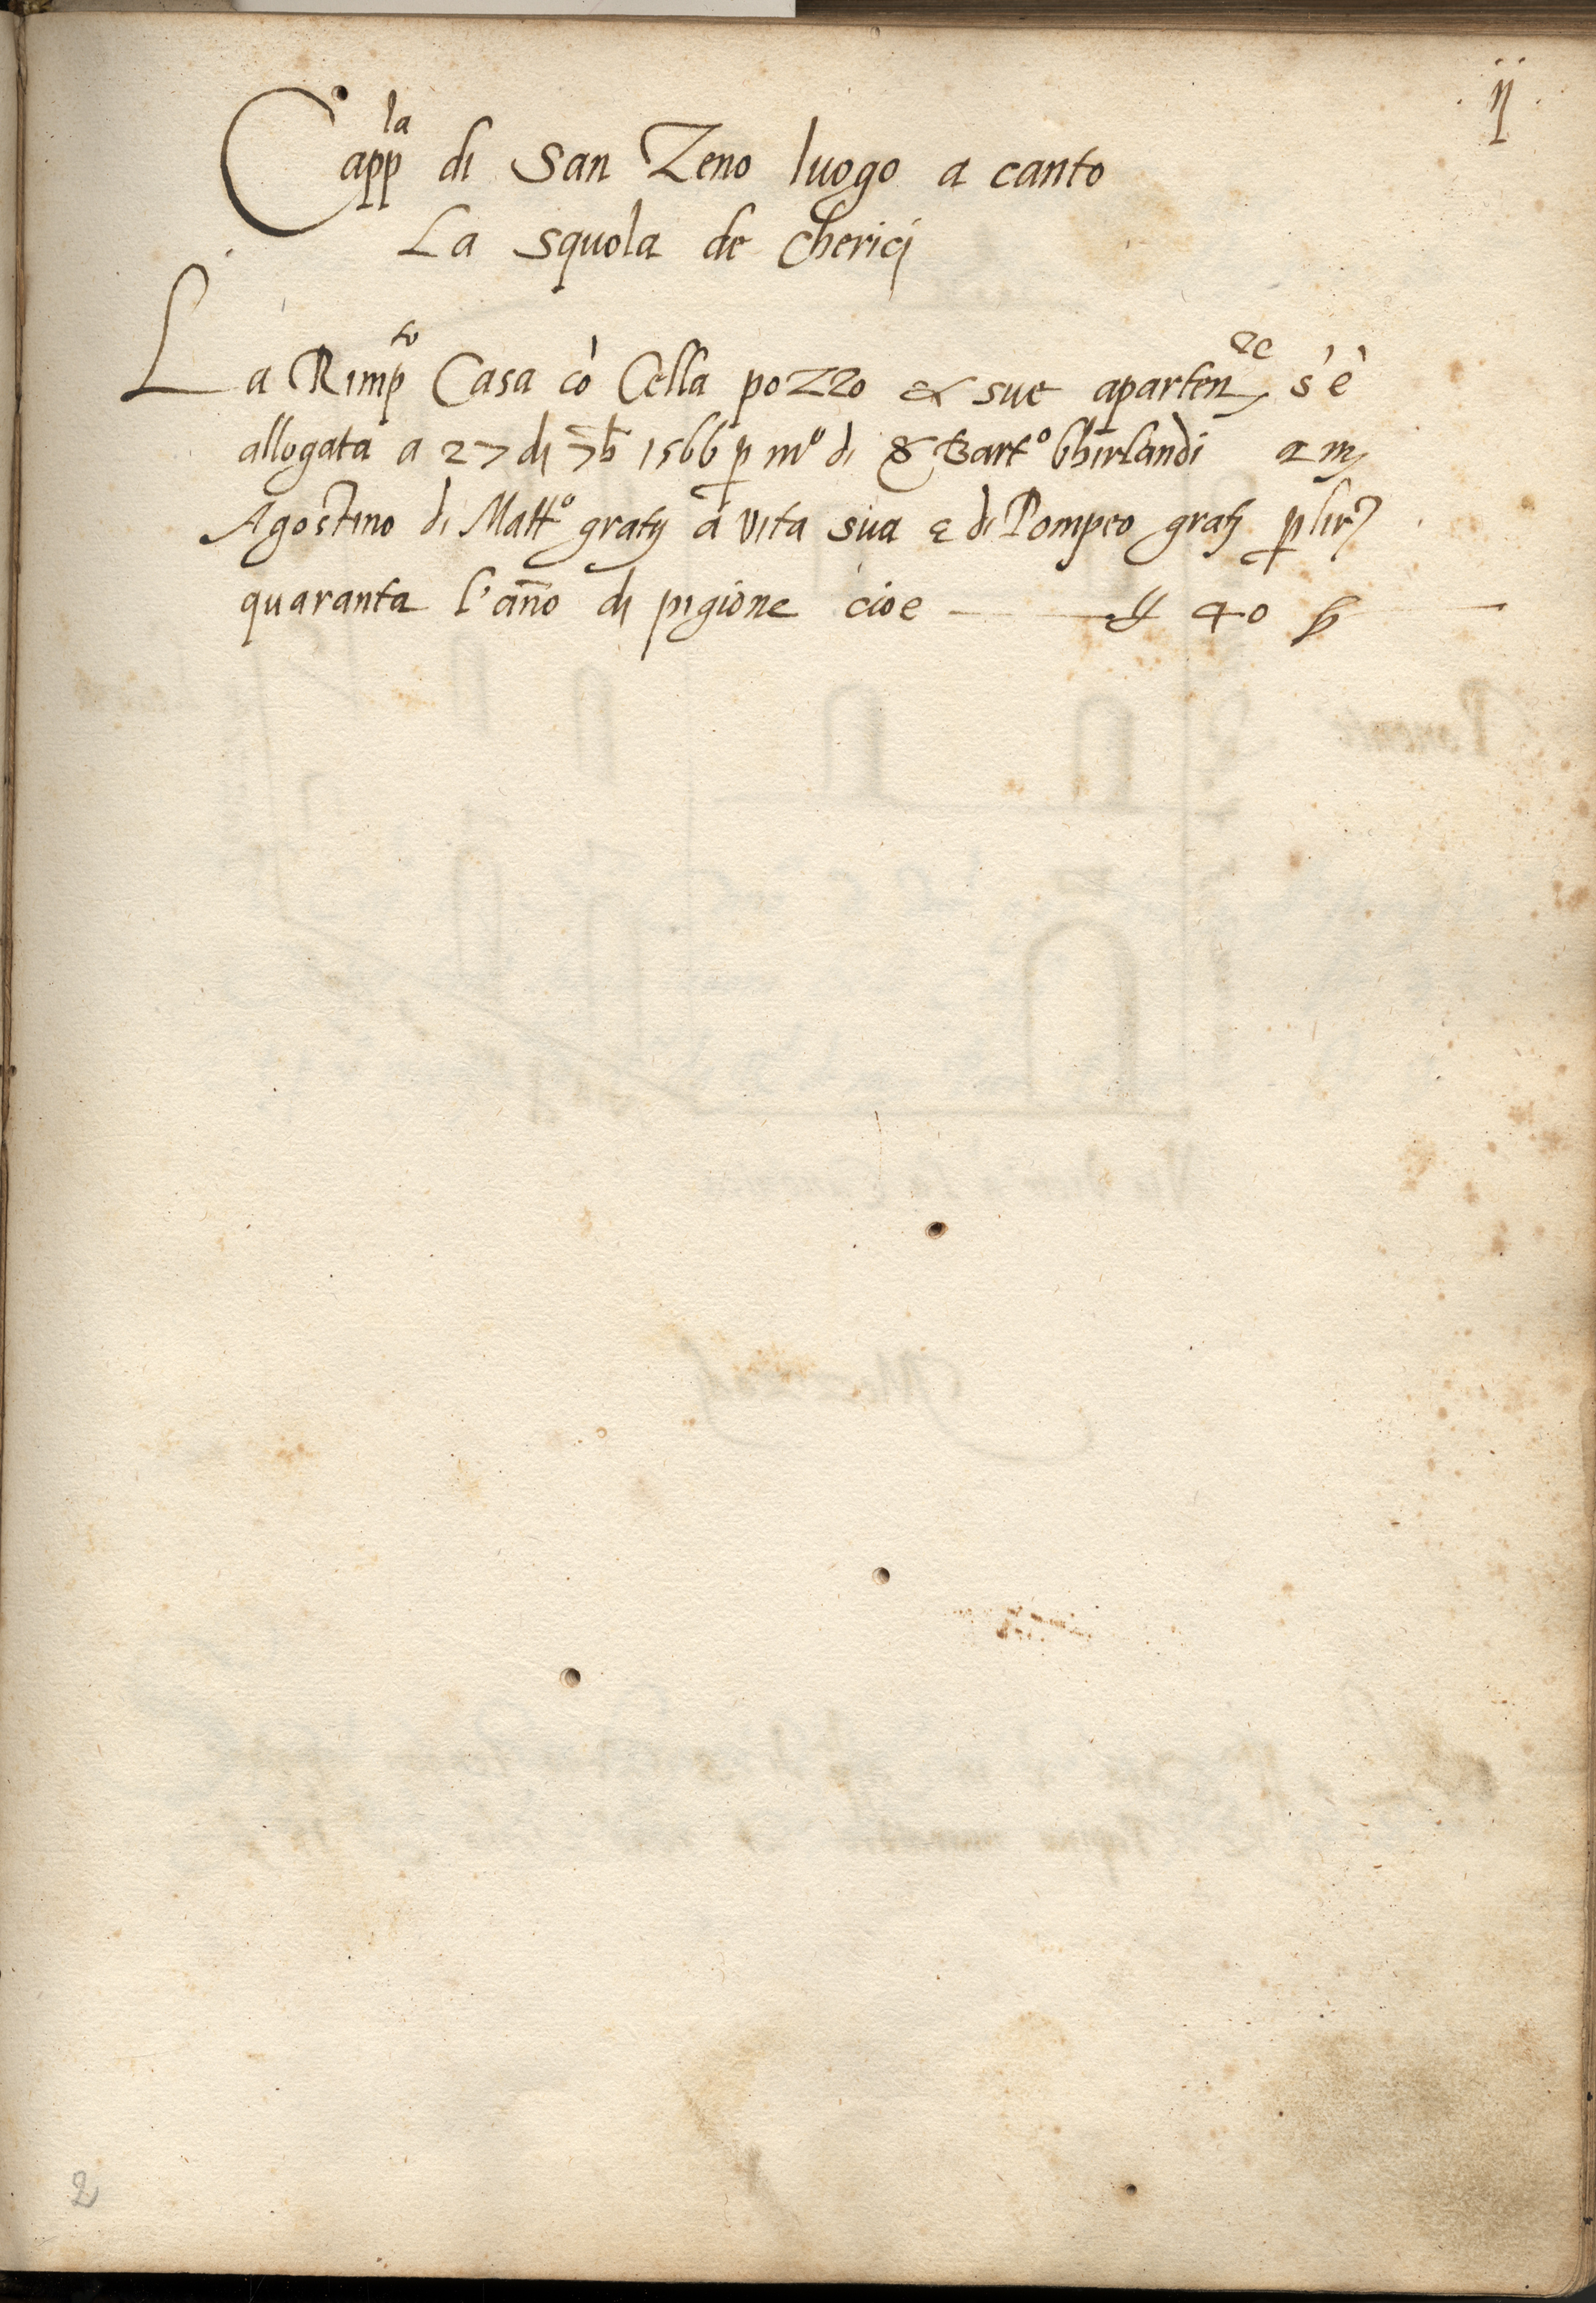 .ij.
Capp^la di San Zeno luogo a canto
La squola de cherici
La Rimp^to Casa cò Cella pozzo & sue aparten^ze s'è
allogata a 27 di 7b 1566 p m^o di S Bart^o Ghirlandi a m
Agostino di Matt^o gratij a vita sua e di Pompeo gratij p lir
quaranta l'año di pigione cioe — 40 —
2